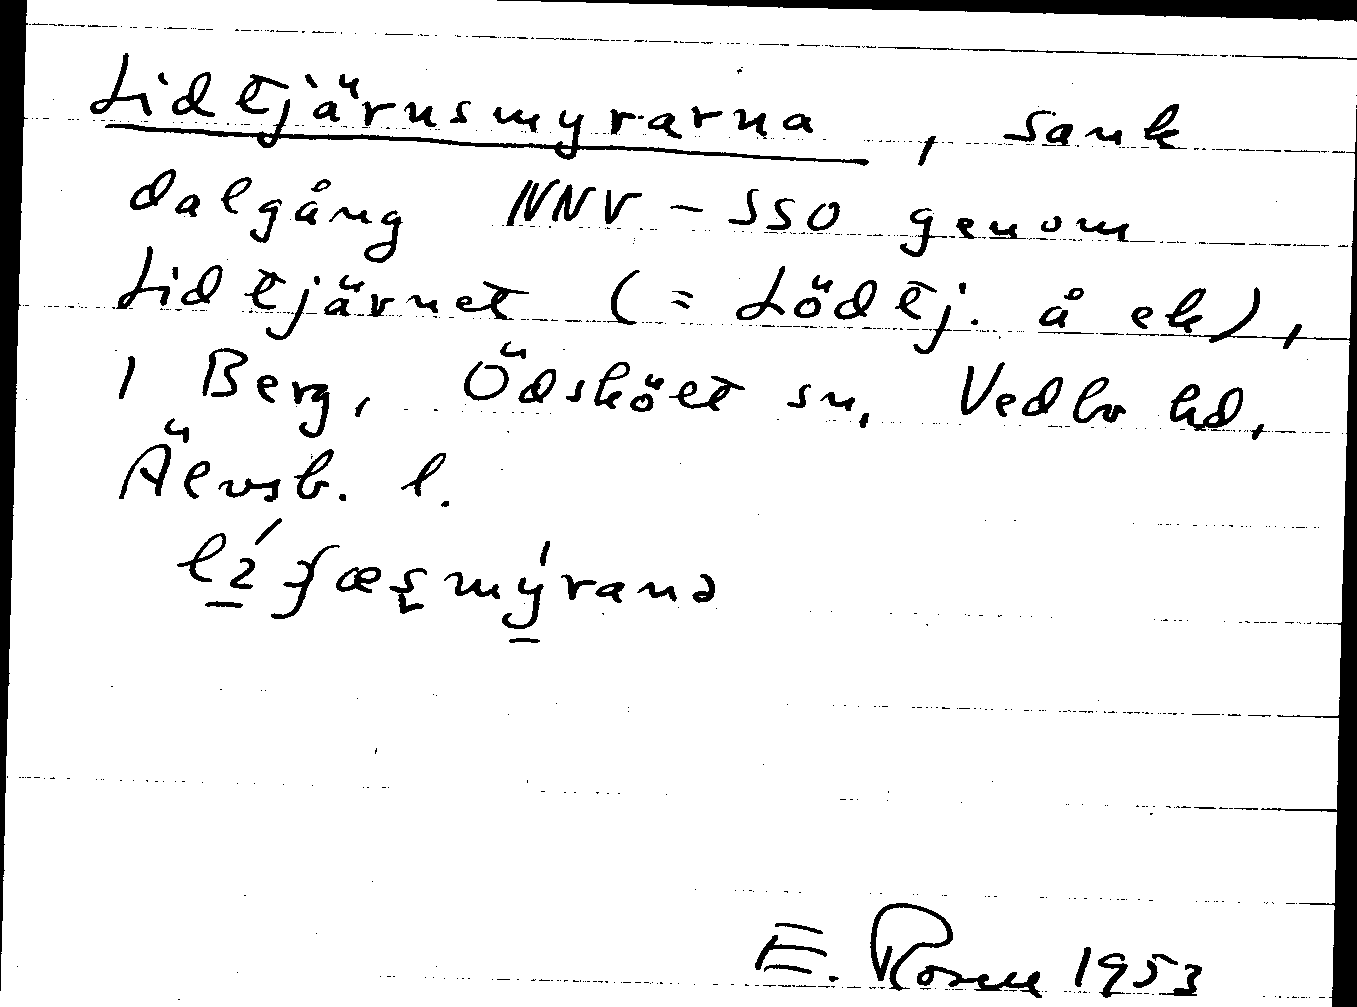 Lidtjärnsmyrarna, sank
dalgång NNV - SSO genom
Lidtjärnet (= Lödtj. å ek),
i Berg, Ödskölt sn, Vedbo hd,
Älvsb. l.
E. Rosell 1953